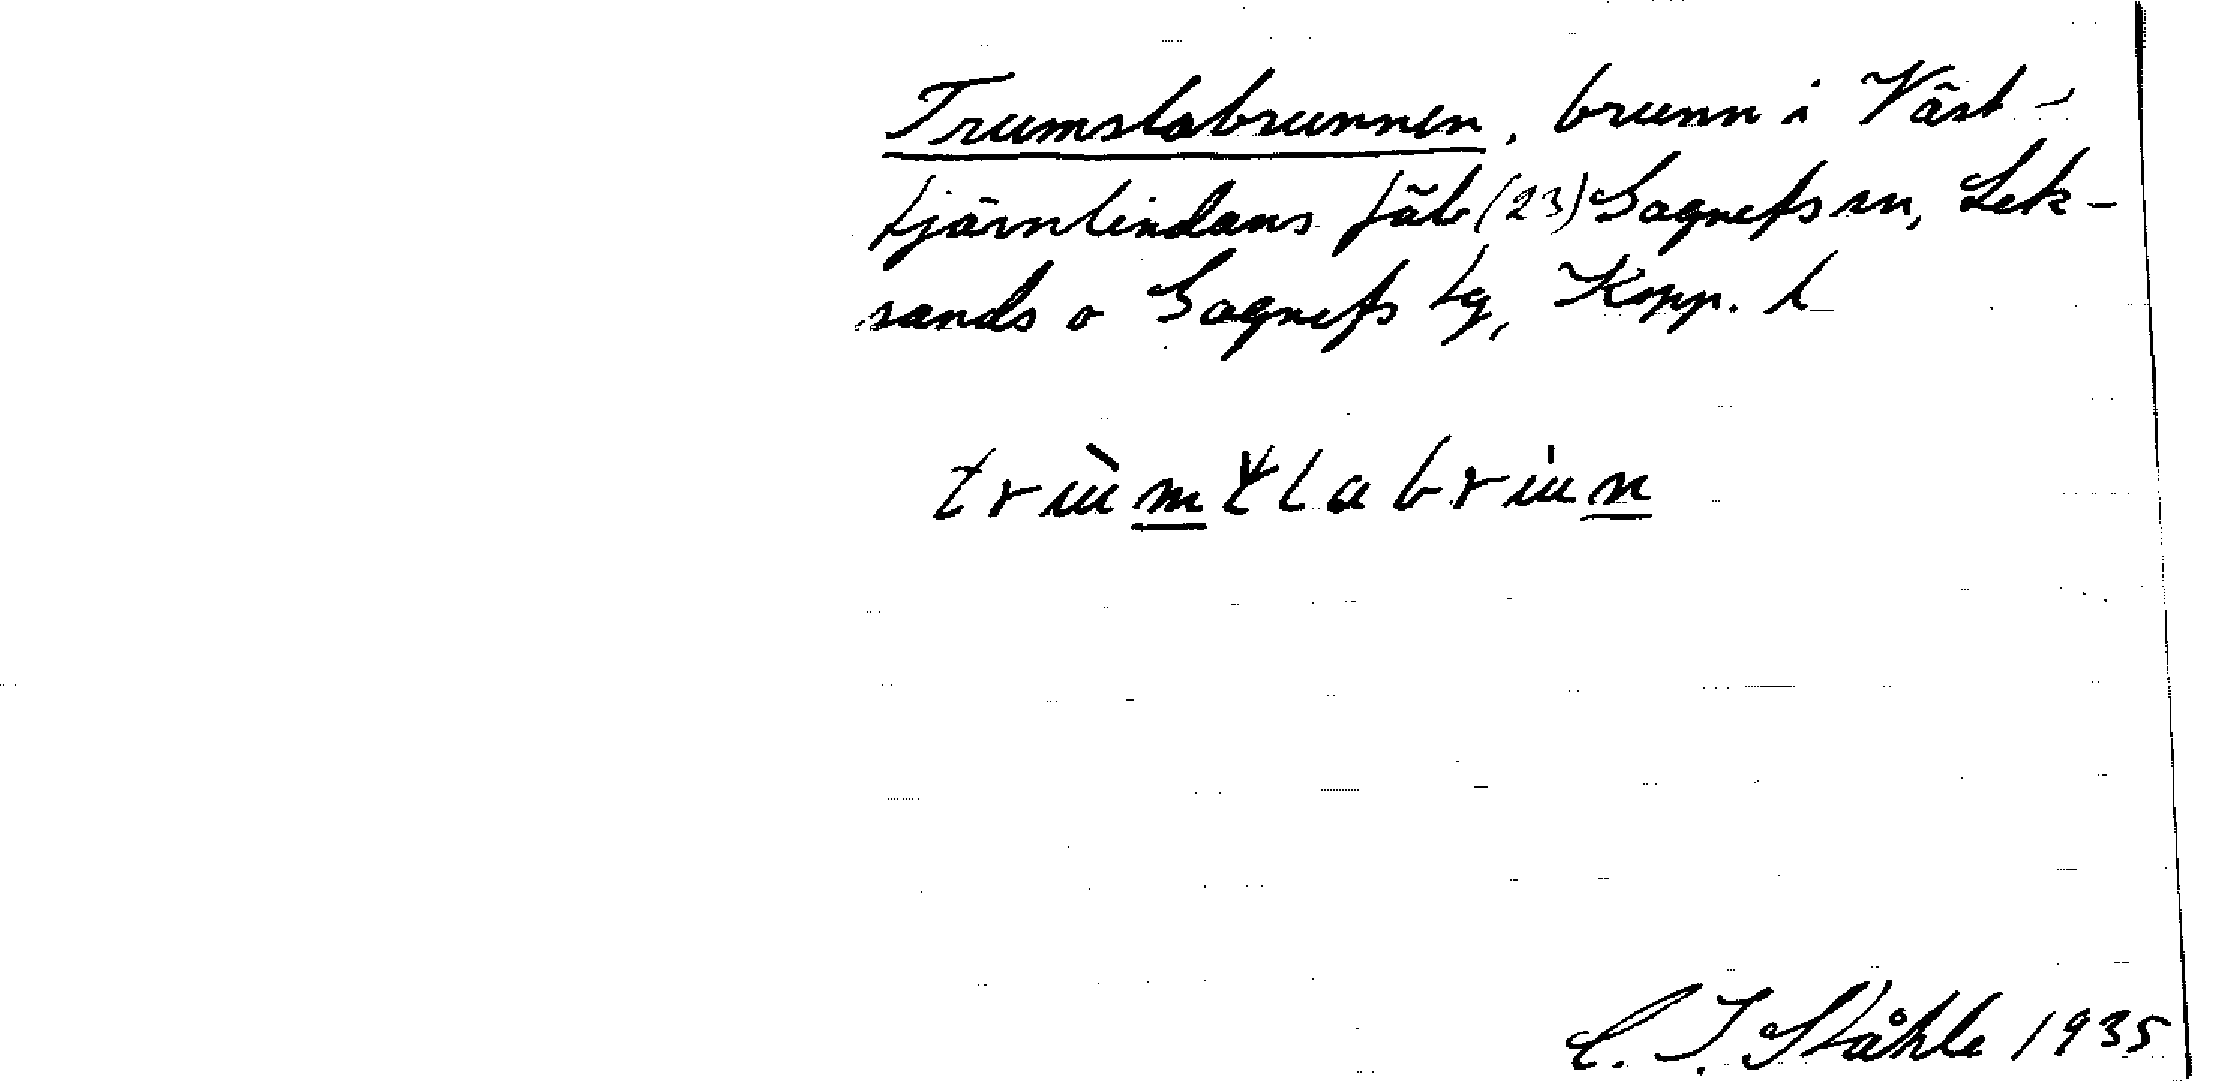 Trumslabrunnen, brunn i Väst-
tjärnlindans fäb (23) Gagnefs sn, Lek-
sands o Gagnefs tg, Kopp. l
C. I. Ståhle 1935